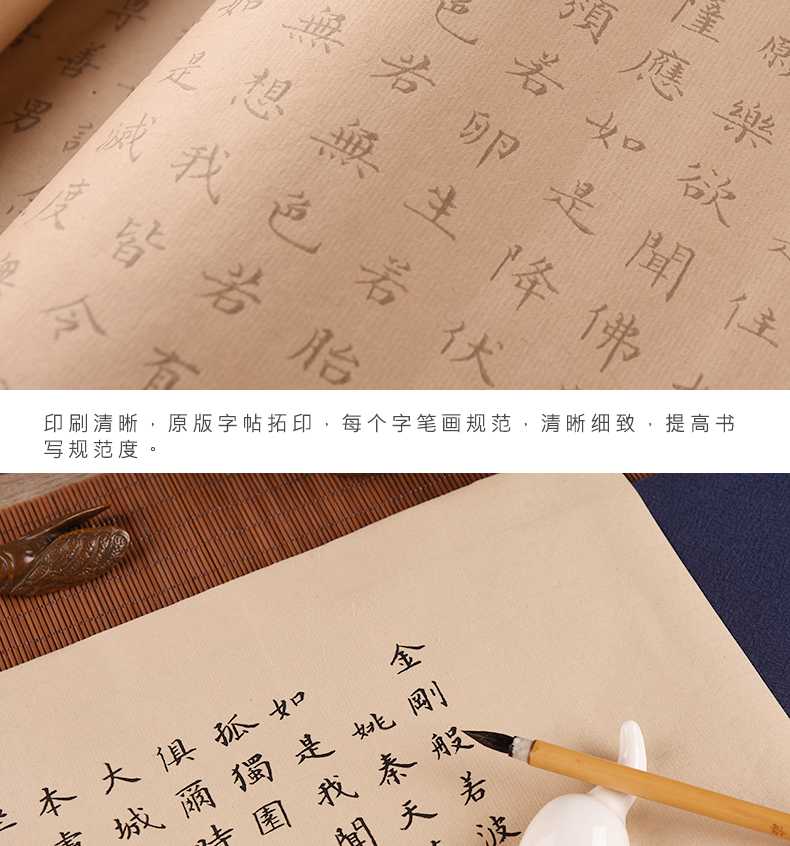 願樂欲聞佛
住
應如是降伏
類若卵生若胎
色若無色若有
無想我皆令
是滅度無
尊善男
印刷清晰，原版字帖拓印，每个字笔画规范，清晰细致，提高书
写规范度。
金剛般若波
姚秦天
如是我聞
孤獨園
俱爾時
大城
本處